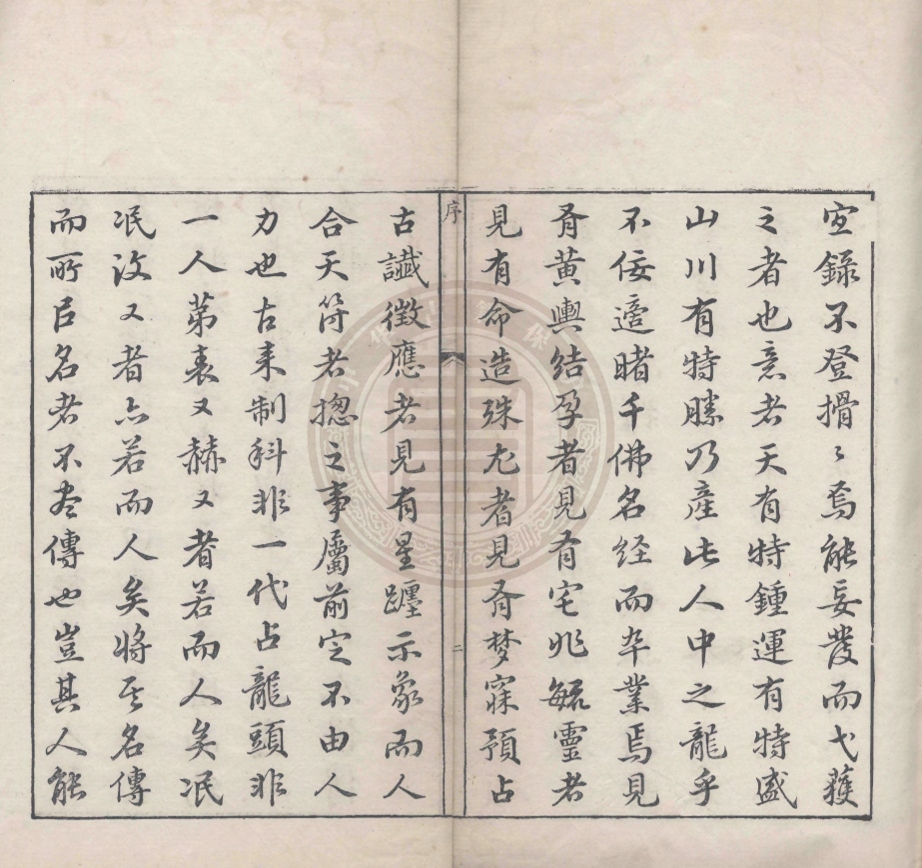 宦錄不登搰〻焉能妄覬而弋獲
之者也意者天有特鍾運有特盛
山川有特勝乃產此人中之龍乎
不佞適睹千佛名經而卒業焉見
有黃輿結孕者見有宅兆毓靈者
見有命造殊尤者見有夢寐預占
序
二
古讖徵應者見有星躔示象而人
合天符者揔之事屬前定不由人
力也古来制科非一代占龍頭非
一人第表又赫又者若而人矣泯
泯沒又者亦若而人矣將其名傳
而所㠯名者不盡傳也豈其人能